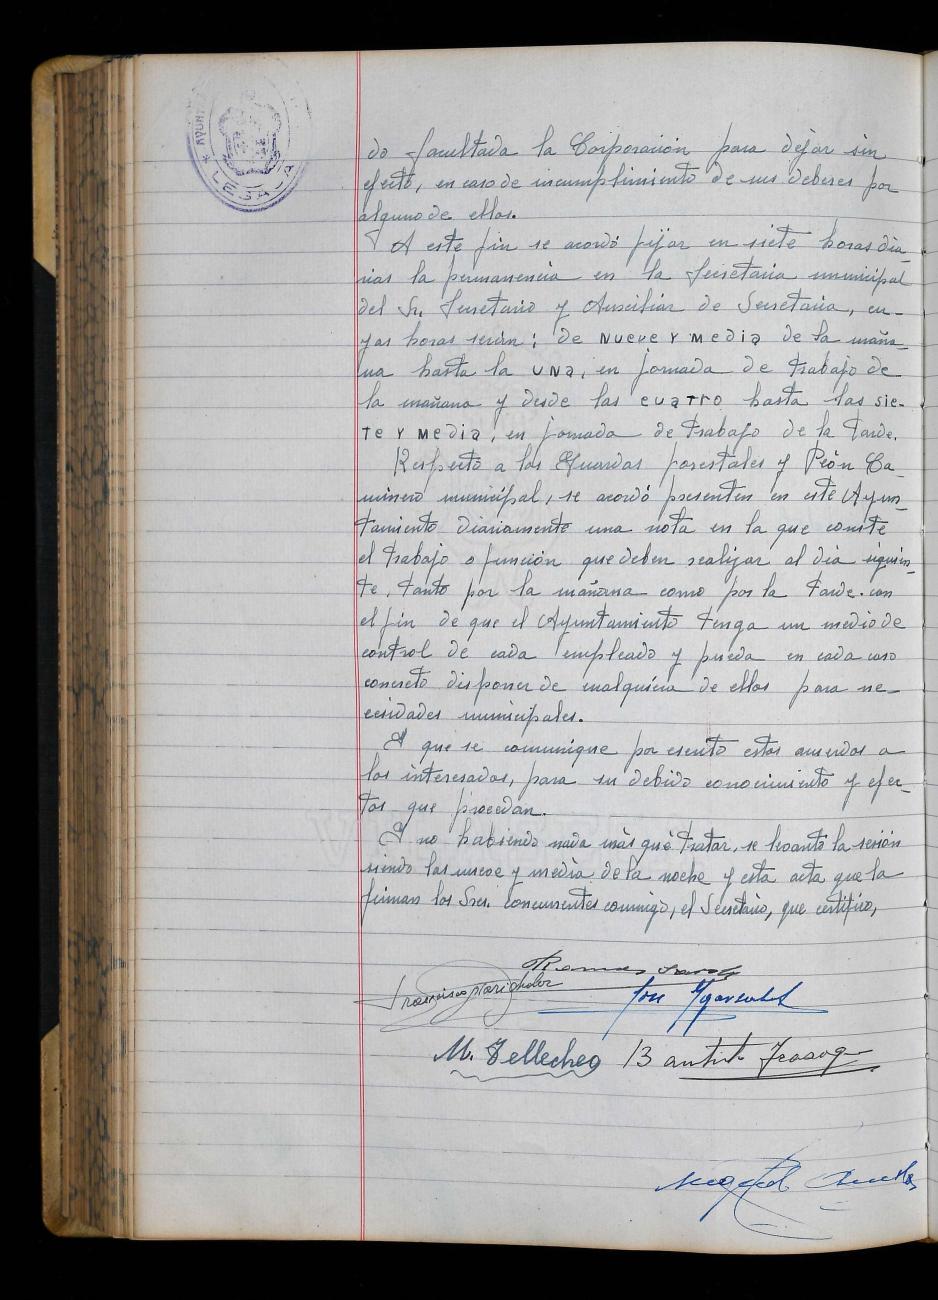 AYUNT
* LESACA
do facultada la Corporación para dejar sin
efecto, en caso de incumplimiento de sus deberes por
alguno de ellos.
A este fin se acordó fijar en siete horas dia-
rias la permanencia en la Secretaria municipal
del Sr. Secretario y Auxiliar de Secretaria, cu-
yas horas serán; de NUEVE Y MEDIA de la maña-
na hasta la UNA, en jornada de trabajo de
la mañana y desde las CUATRO hasta las SIE-
TE Y MEDIA, en jornada de trabajo de la tarde.
Respecto a los Guardas forestales y Peón Ca-
minero municipal, se acordó presenten en este Ayun-
tamiento diariamente una nota en la que conste
el trabajo o función que deben realizar al día siguien-
te, tanto por la mañana como por la tarde. con
el fin de que el Ayuntamiento tenga un medio de
control de cada empleado y pueda en cada caso
concreto disponer de cualquiera de ellos para ne-
cesidades municipales.
Y que se comunique por escrito estos acuerdos a
los interesados, para su debido conocimiento y efec-
tos que procedan.
Y no habiendo nada más qué tratar, se levantó la sesión
siendo las nueve y media de la noche y esta acta que la
firman los Sres. concurrentes conmigo, el Secretario, que certifico,
Francisco
José
M. Tellechea